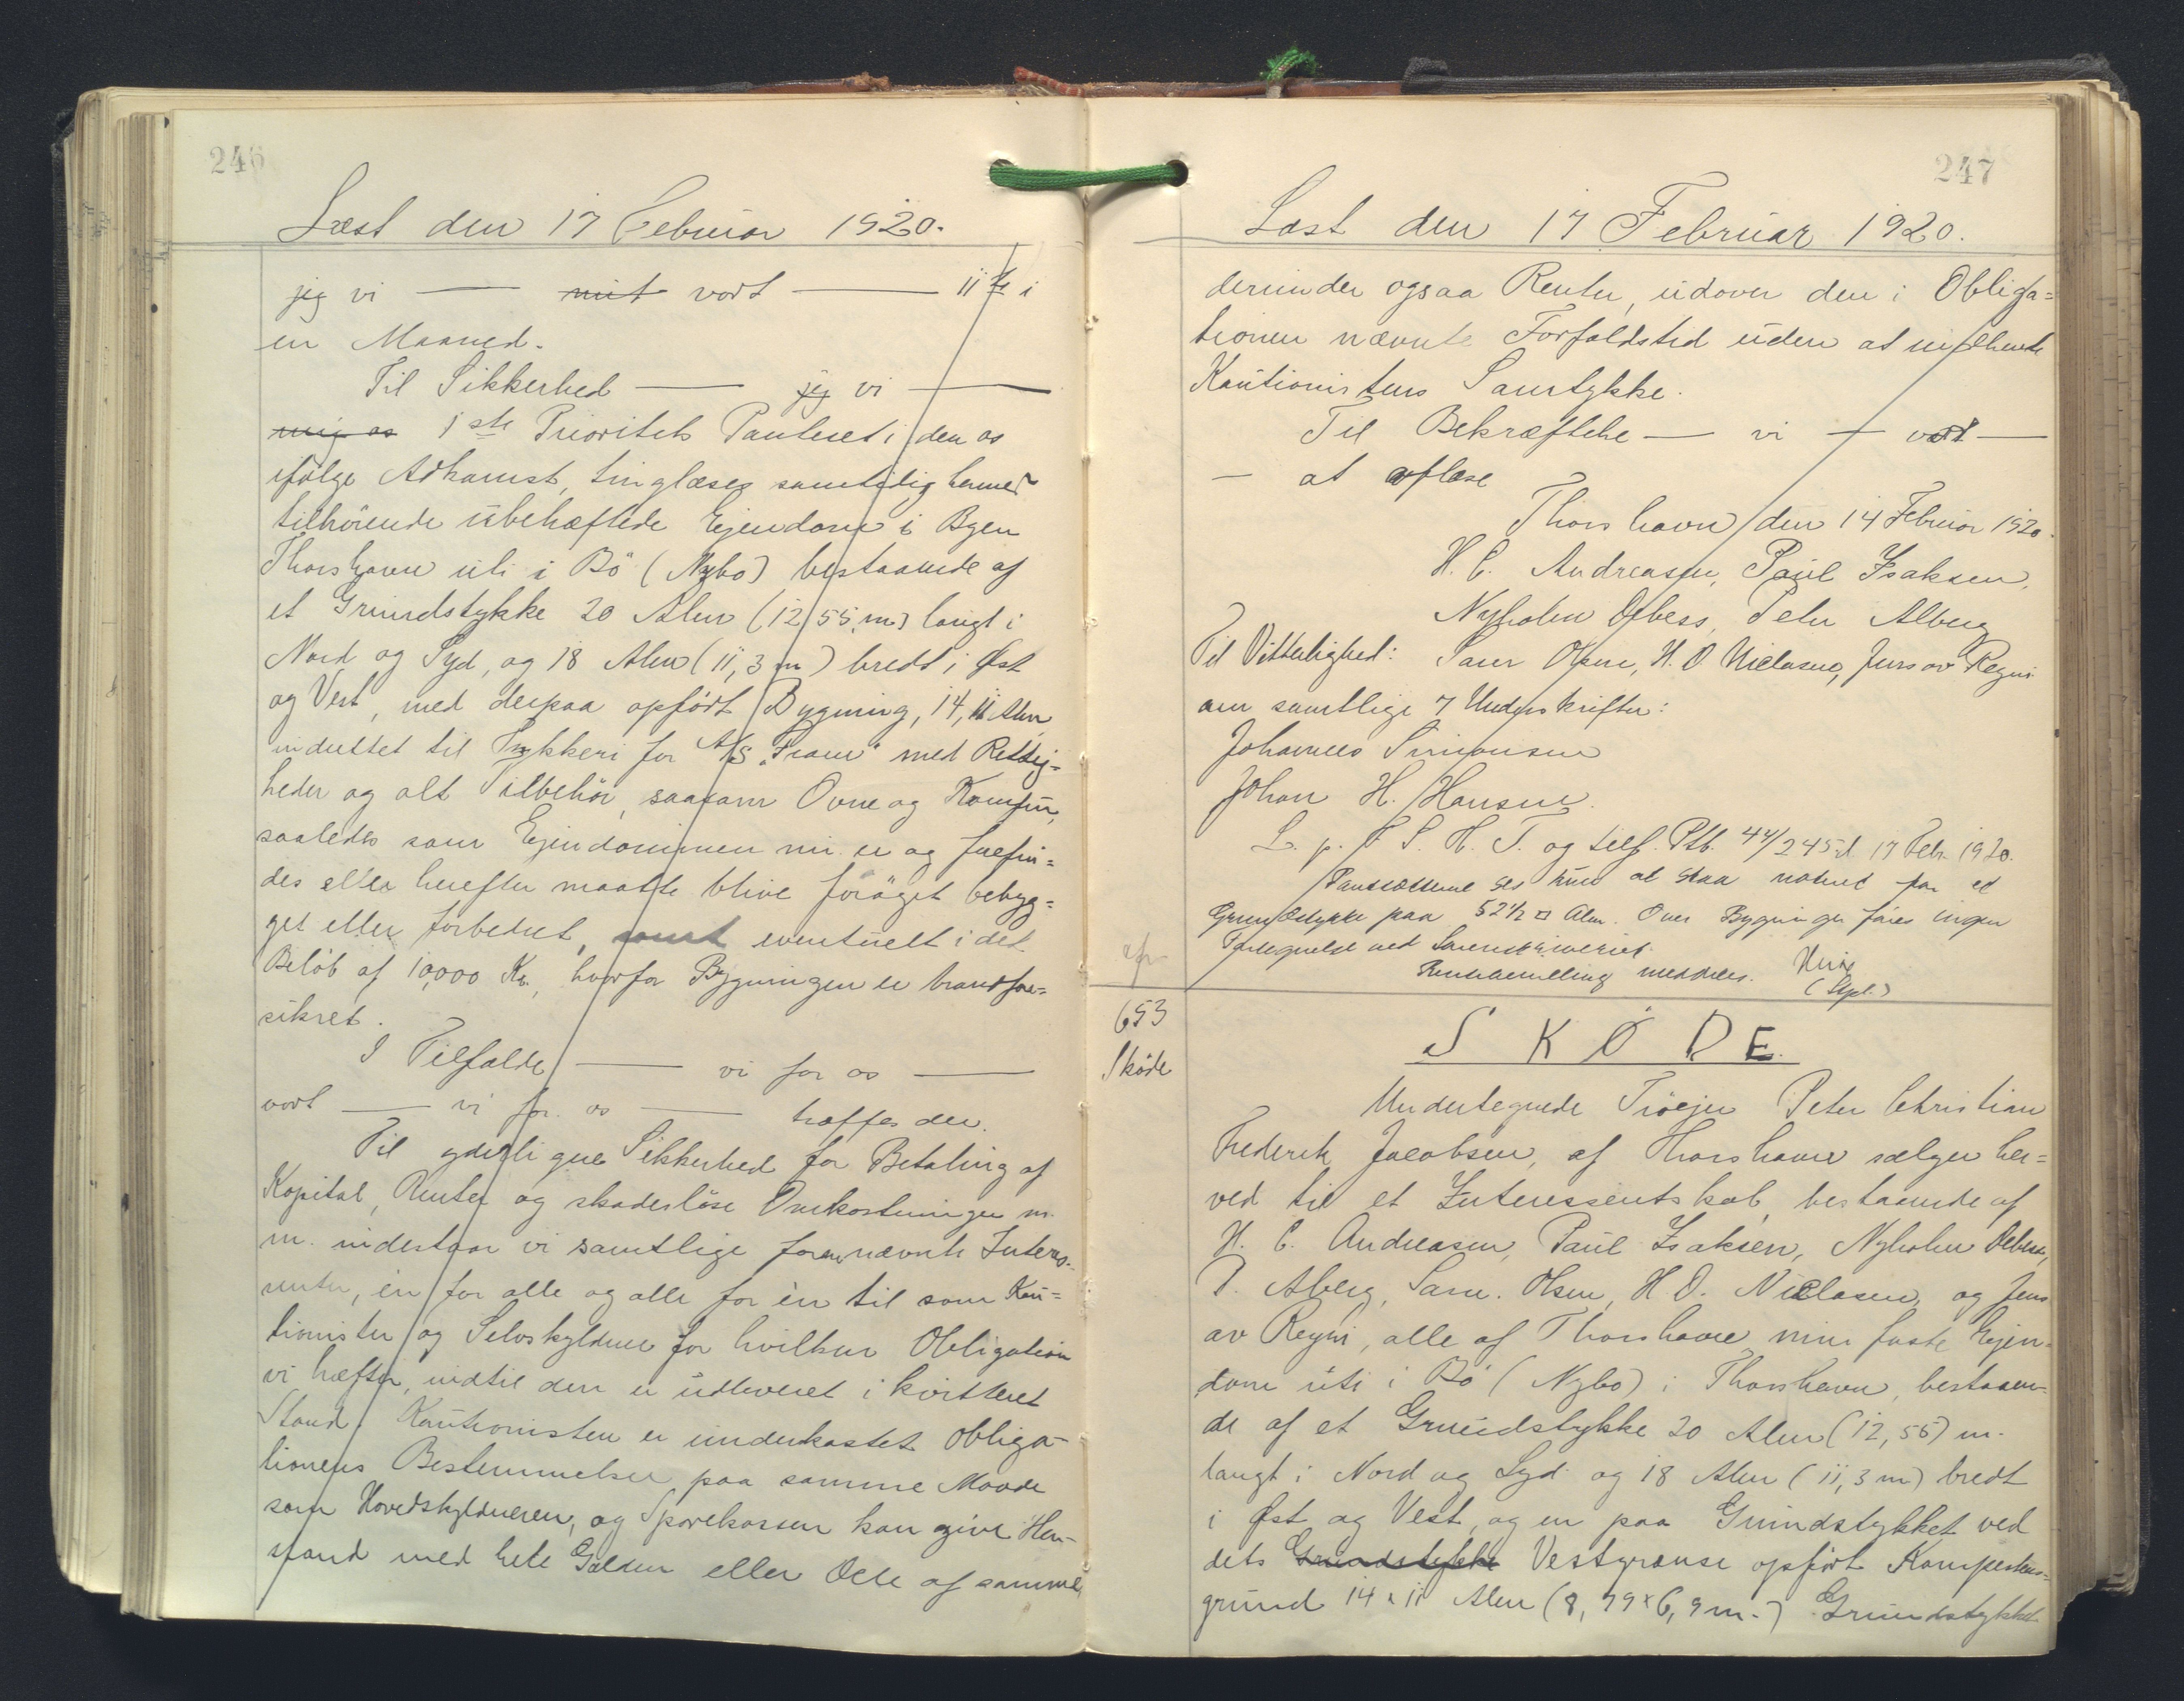 246
Læst den 17 Februar 1920.
jeg vi — mit vort — 11 te i
en Maaned.
Til Sikkerhed — jeg vi —
mig os 1ste Prioritets Panteret i den os
ifølge Adkomst, tinglæses samtidig hermed
tilhörende übehæftede Ejendom i Byen
Thorshavn uti i Bö (Nybo) bestaaende af
et Grundstykke 20 Alen (12,55 m) langt i
Nord og Syd, og 18 Alen (11,3 m) bredt i Øst
og Vest, med derpaa opført Bygning, 14, 11 Alen
indrettet til Trykkeri for A/S "Fram" med Rettig=
heder og alt Tilbehör, saasom Ovne og Komfur,
saaledes som Ejendommen nu er og forefin=
des eller herefter maatte blive forøget bebyg=
get eller forbedret, samt eventuelt i det
Beløb af 10,000 Kr., hvorfor Bygningen er brandfor=
sikret.
I Tilfælde — vi for os —
vort — vi for os — træffes der.
Til yderligere Sikkerhed for Betaling af
Kapital, Renter og skadesløse Omkostninger m.
m. indestaar vi samtlige forannævnte Interes-
senter, én for alle og alle for én til som Kau=
tionister og Selvskyldnere for hvilken Obligation
vi hæfter, indtil den er udleveret i kvitteret
Stand. Kautionisten er underkastet Obliga-
tionens Bestemmelser paa samme Maade
som Hovedskyldneren, og Sparekassen kan give Hen-
stand med hele Gælden eller Dele af samme,
247
Læst den 17 Februar 1920.
derunder ogsaa Renter, udover den i Obliga=
tionen nævnte Forfaldstid uden at indhente
Kautionistens Samtykke.
Til Bekræftelse — vi — vort —
— at aflæse
Thorshavn den 14 Februar 1920.
H. C. Andreasen, Paul Isaksen,
Nyholm Debess, Peter Alberg
Til Vitterlighed: Sam Olsen, H. O. Niclasen, Jens av Reyni
om samtlige 7 Underskrifter:
Johannes Simonsen
Johan H. Hansen.
L. p. F. S. H. T. og tilf. Ptb. 44/245 d 17 Febr. 1920.
Pantsætterne ses kun at staa noteret for et
Grundstykke paa 52 1/2 □ Alen. Over Bygninger føres ingen
Fortegnelse ved Sorenskriveriet.
Renteanmelding meddeles.
(Stpl.)
653
Sköde
SKÖDE.
Undertegnede Fröejer Peter Christian
Frederik Jacobsen, af Thorshavn sælger her=
ved til et Interessentskab, bestaaende af
H. C. Andreasen, Paul Isaksen, Nyholm Debess,
P. Alberg, Sam. Olsen, H. O. Niclasen, og Jens
av Reyni, alle af Thorshavn min faste Ejen=
dom uti i Bö (Nybo) i Thorshavn, bestaaen=
de af et Grundstykke 20 Alen (12,55) m.
langt i Nord og Syd og 18 Alen (11,3 m) bredt
i Øst og Vest, og en paa Grundstykket ved
dets Grundstykke Vestgrænse opført Kampestens=
grund 14 x 11 Alen (8,79 x 6,9 m.) Grundstykket